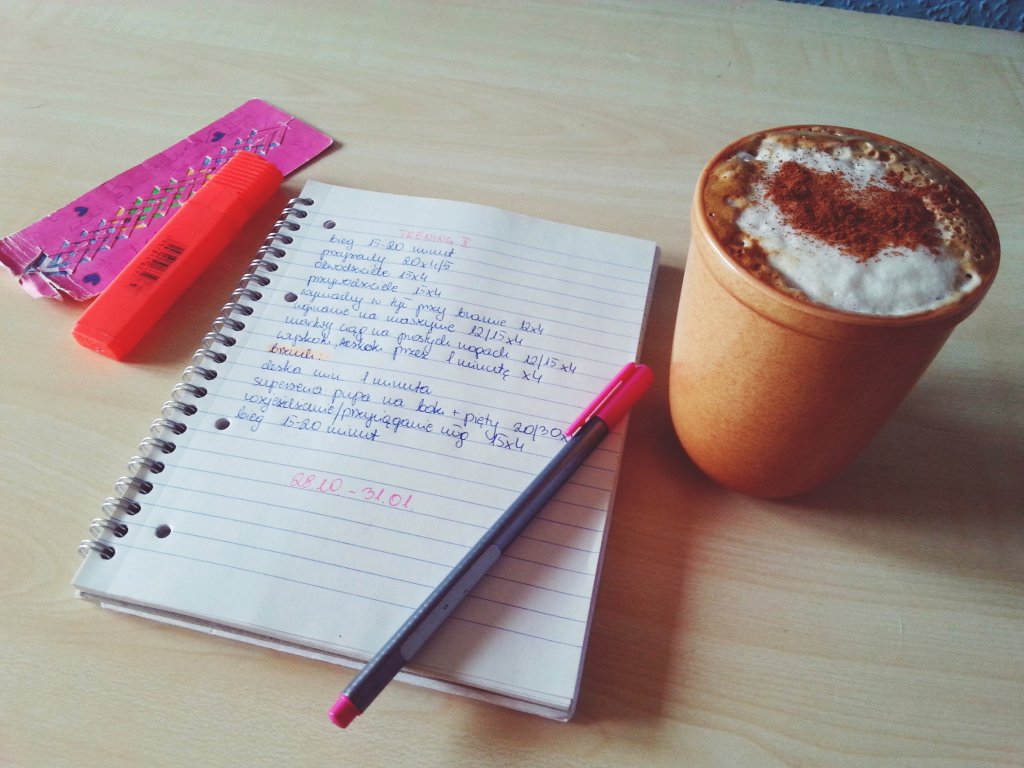 TRENING II
bieg 15-20 minut
przysiady 20x4/5
Odwodzenie 15x4
przywodzenie 15x4
wymachy w tył przy bramie 12x4
uginanie na maszynie 12/15x4
martwy ciąg na prostych nogach 12/15x4
wyskoki, zeskoki przez 1 minutę x4
Brzuch:
deska min. 1 minuta
pupa na boki + pięty 20/30x
/przyciąganie nóg 15x4
bieg 15-20 minut
28.10 - 31.01.